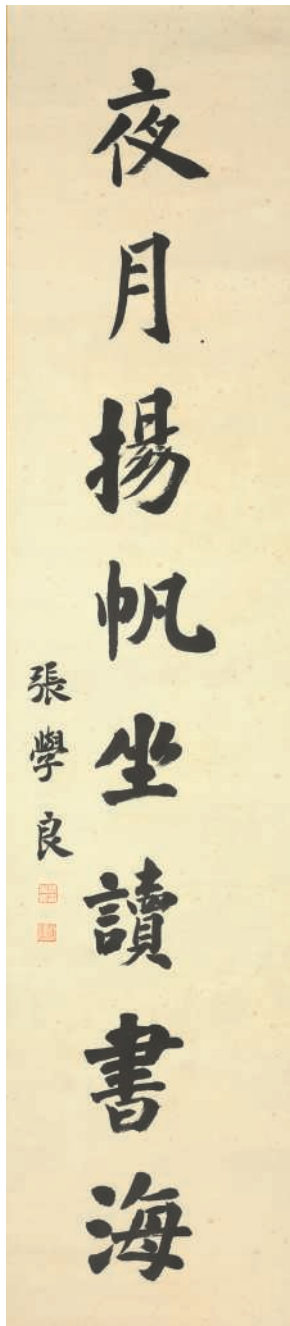 夜月揚帆坐讀書海
張學良